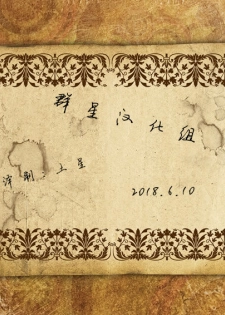 群星汉化组
深刷：土星
2018.6.10